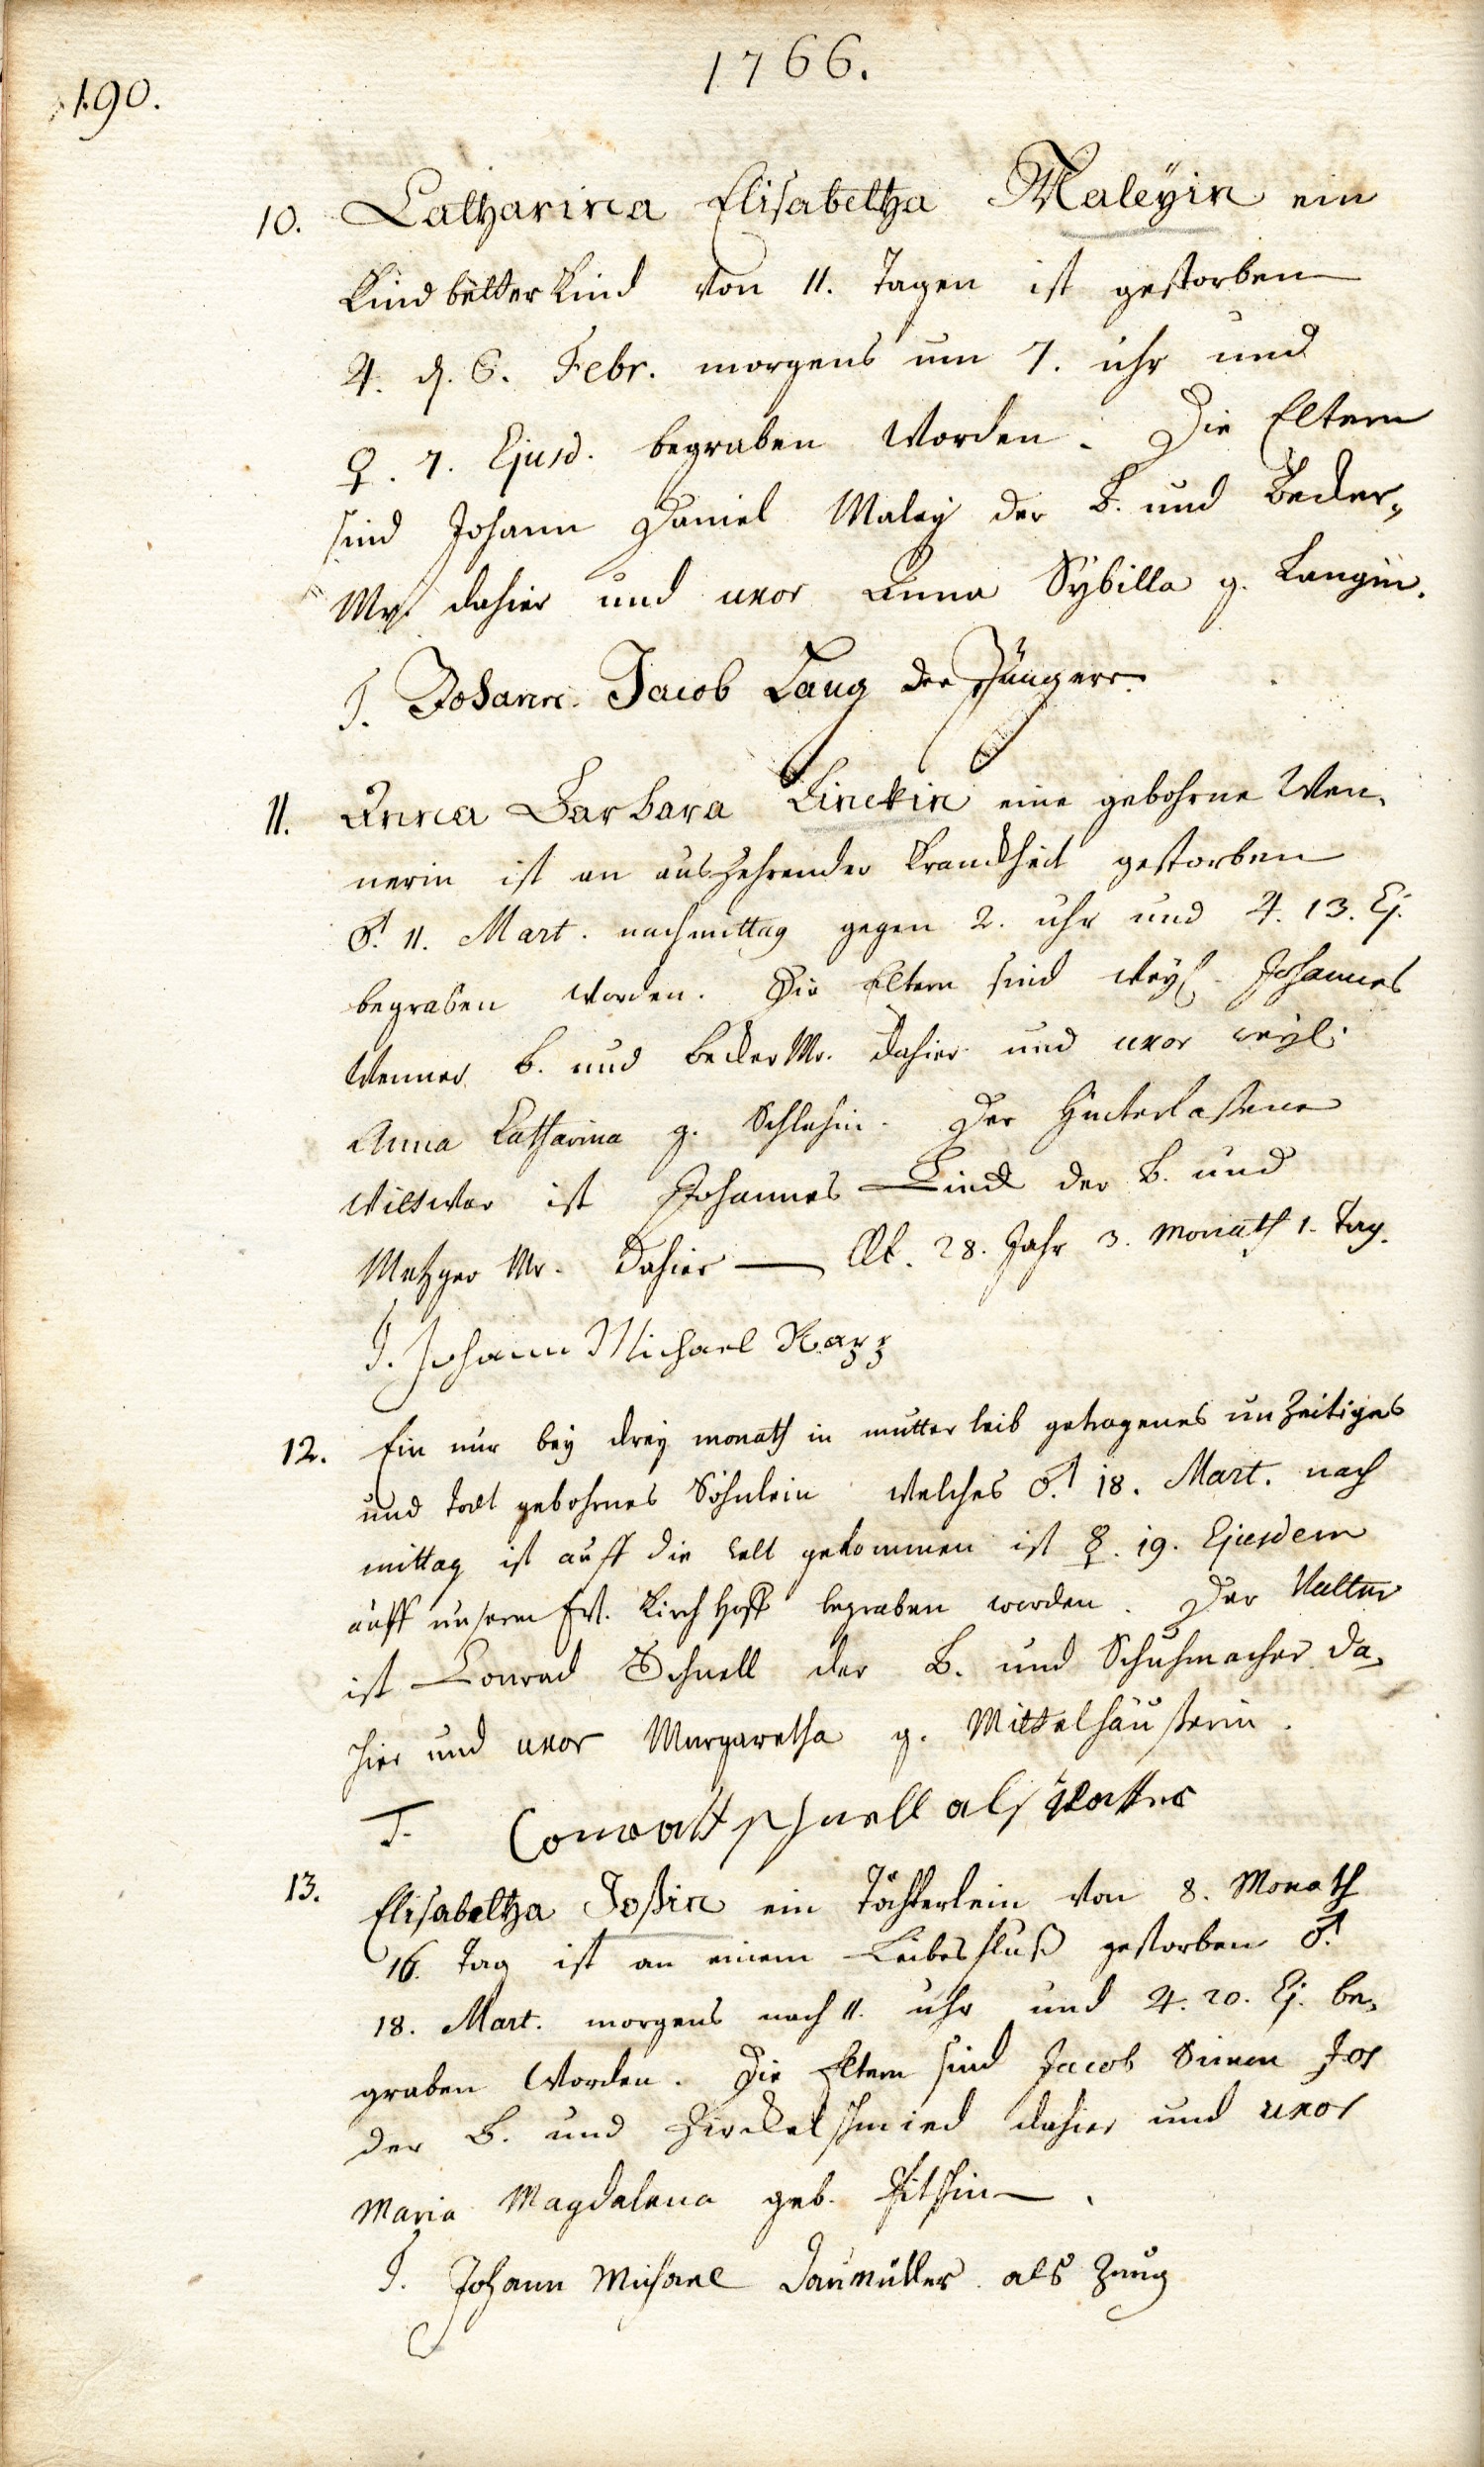 1766.
190.
10. Catharina Elisabetha Maleÿin ein
Kindbetter Kind von 11. Tagen ist gestorben
♃. d. 6. Febr. morgens um 7. uhr und
♀. 7. Ejusd. begraben worden. Die Eltern
sind Johann Daniel Maleÿ der B. und Becker,
Mr. dahier und uxor Anna Sybilla g. Langin.
T. Johann Jacob Lang der Jüngere
11. Anna Barbara Linckin eine gebohrne Wen,
nerin ist an auszehrender Kranckheit gestorben
♂. 11. Mart. nachmittag gegen 2. uhr und ♃. 13. Ej.
begraben worden. Die Eltern sind weyl. Johannes
Wenner B. und Becker Mr. dahier und uxor weyl.
Anna Catharina g. Der Hinterlaßene
Wittwer ist Johannes Linck der B. und
Metzger Mr. dahier — Æt. 28. Jahr 3. Monath 1. Tag.
T. Johann Michael
12. Ein nur bey dreÿ monath in mutter leib getragenes unzeitiges
und todt gebohrnes Söhnlein welches ♂. 18. Mart. nach
mittag ist auff die welt gekommen ist ☿. 19. Ejusdem
auff unserm Ev. Kirch Hoff begraben worden. Der Vatter
ist Conrad Schnell der B. und Schuhmacher da,
hier und uxor Margaretha g. Mittelhäußerin.
T. Conratt schnell als Vatter
13. Elisabetha Joßin ein Töchterlein von 8. Monath
16. Tag ist an einem Leibesfluß gestorben ♂.
18. Mart. morgens nach 11. uhr und ♃. 20. Ej. be,
graben worden. Die Eltern sind Jacob Simon Jos
der B. und Zirckelschmied dahier und uxor
Maria Magdalena geb.
T. Johann Michael Daumüller als Zeug